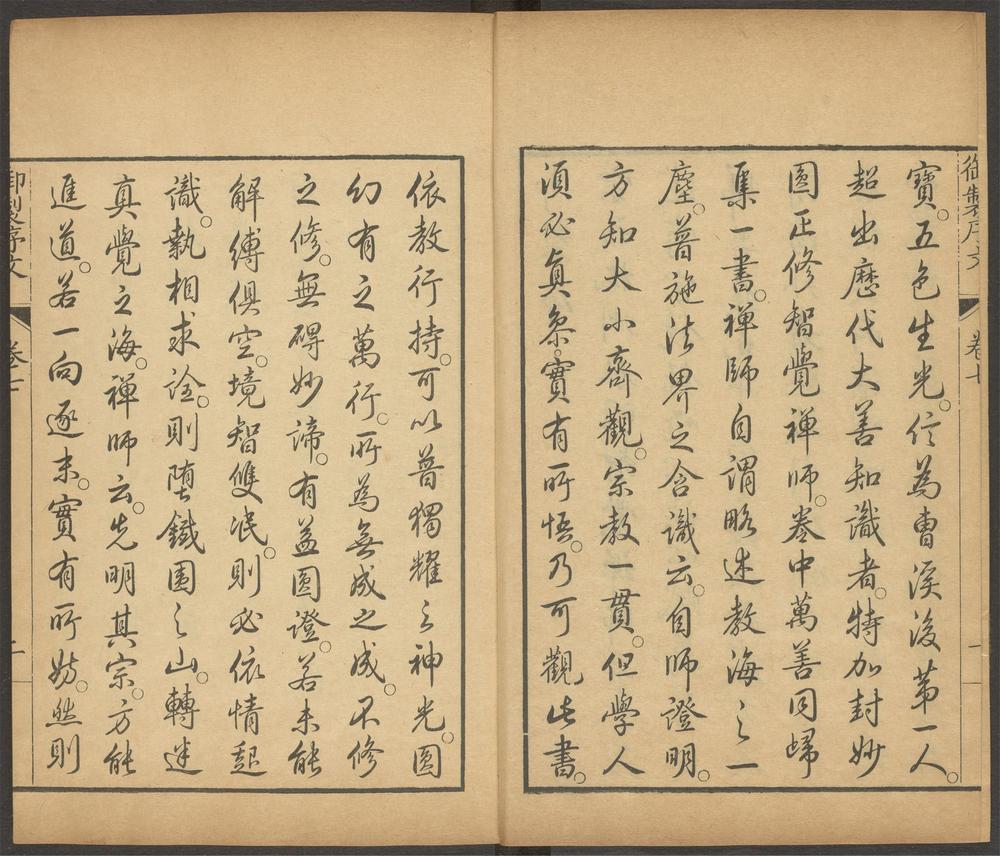 御製序文 卷十
寶。五色生光。信為曹溪後第一人。
超出歷代大善知識者。特加封妙
圓正修智覺禪師。卷中萬善同歸
集一書。禪師自謂略述教海之一
塵。普施法界之含識云。自師證明。
方知大小齊觀。宗教一貫。但學人
須必真參。實有所悟。乃可觀此書。
依教行持。可以普獨耀之神光。圓
幻有之萬行。所為無成之成。不修
之修。無碍妙諦。有益圓證。若未能
解縛俱空。境智雙泯。則必依情起
識。執相求詮。則墮鐵圍之山。轉迷
真覺之海。禪師云。先明其宗。方能
進道。若一向逐末。實有所妨。然則
御製序文 卷十 二